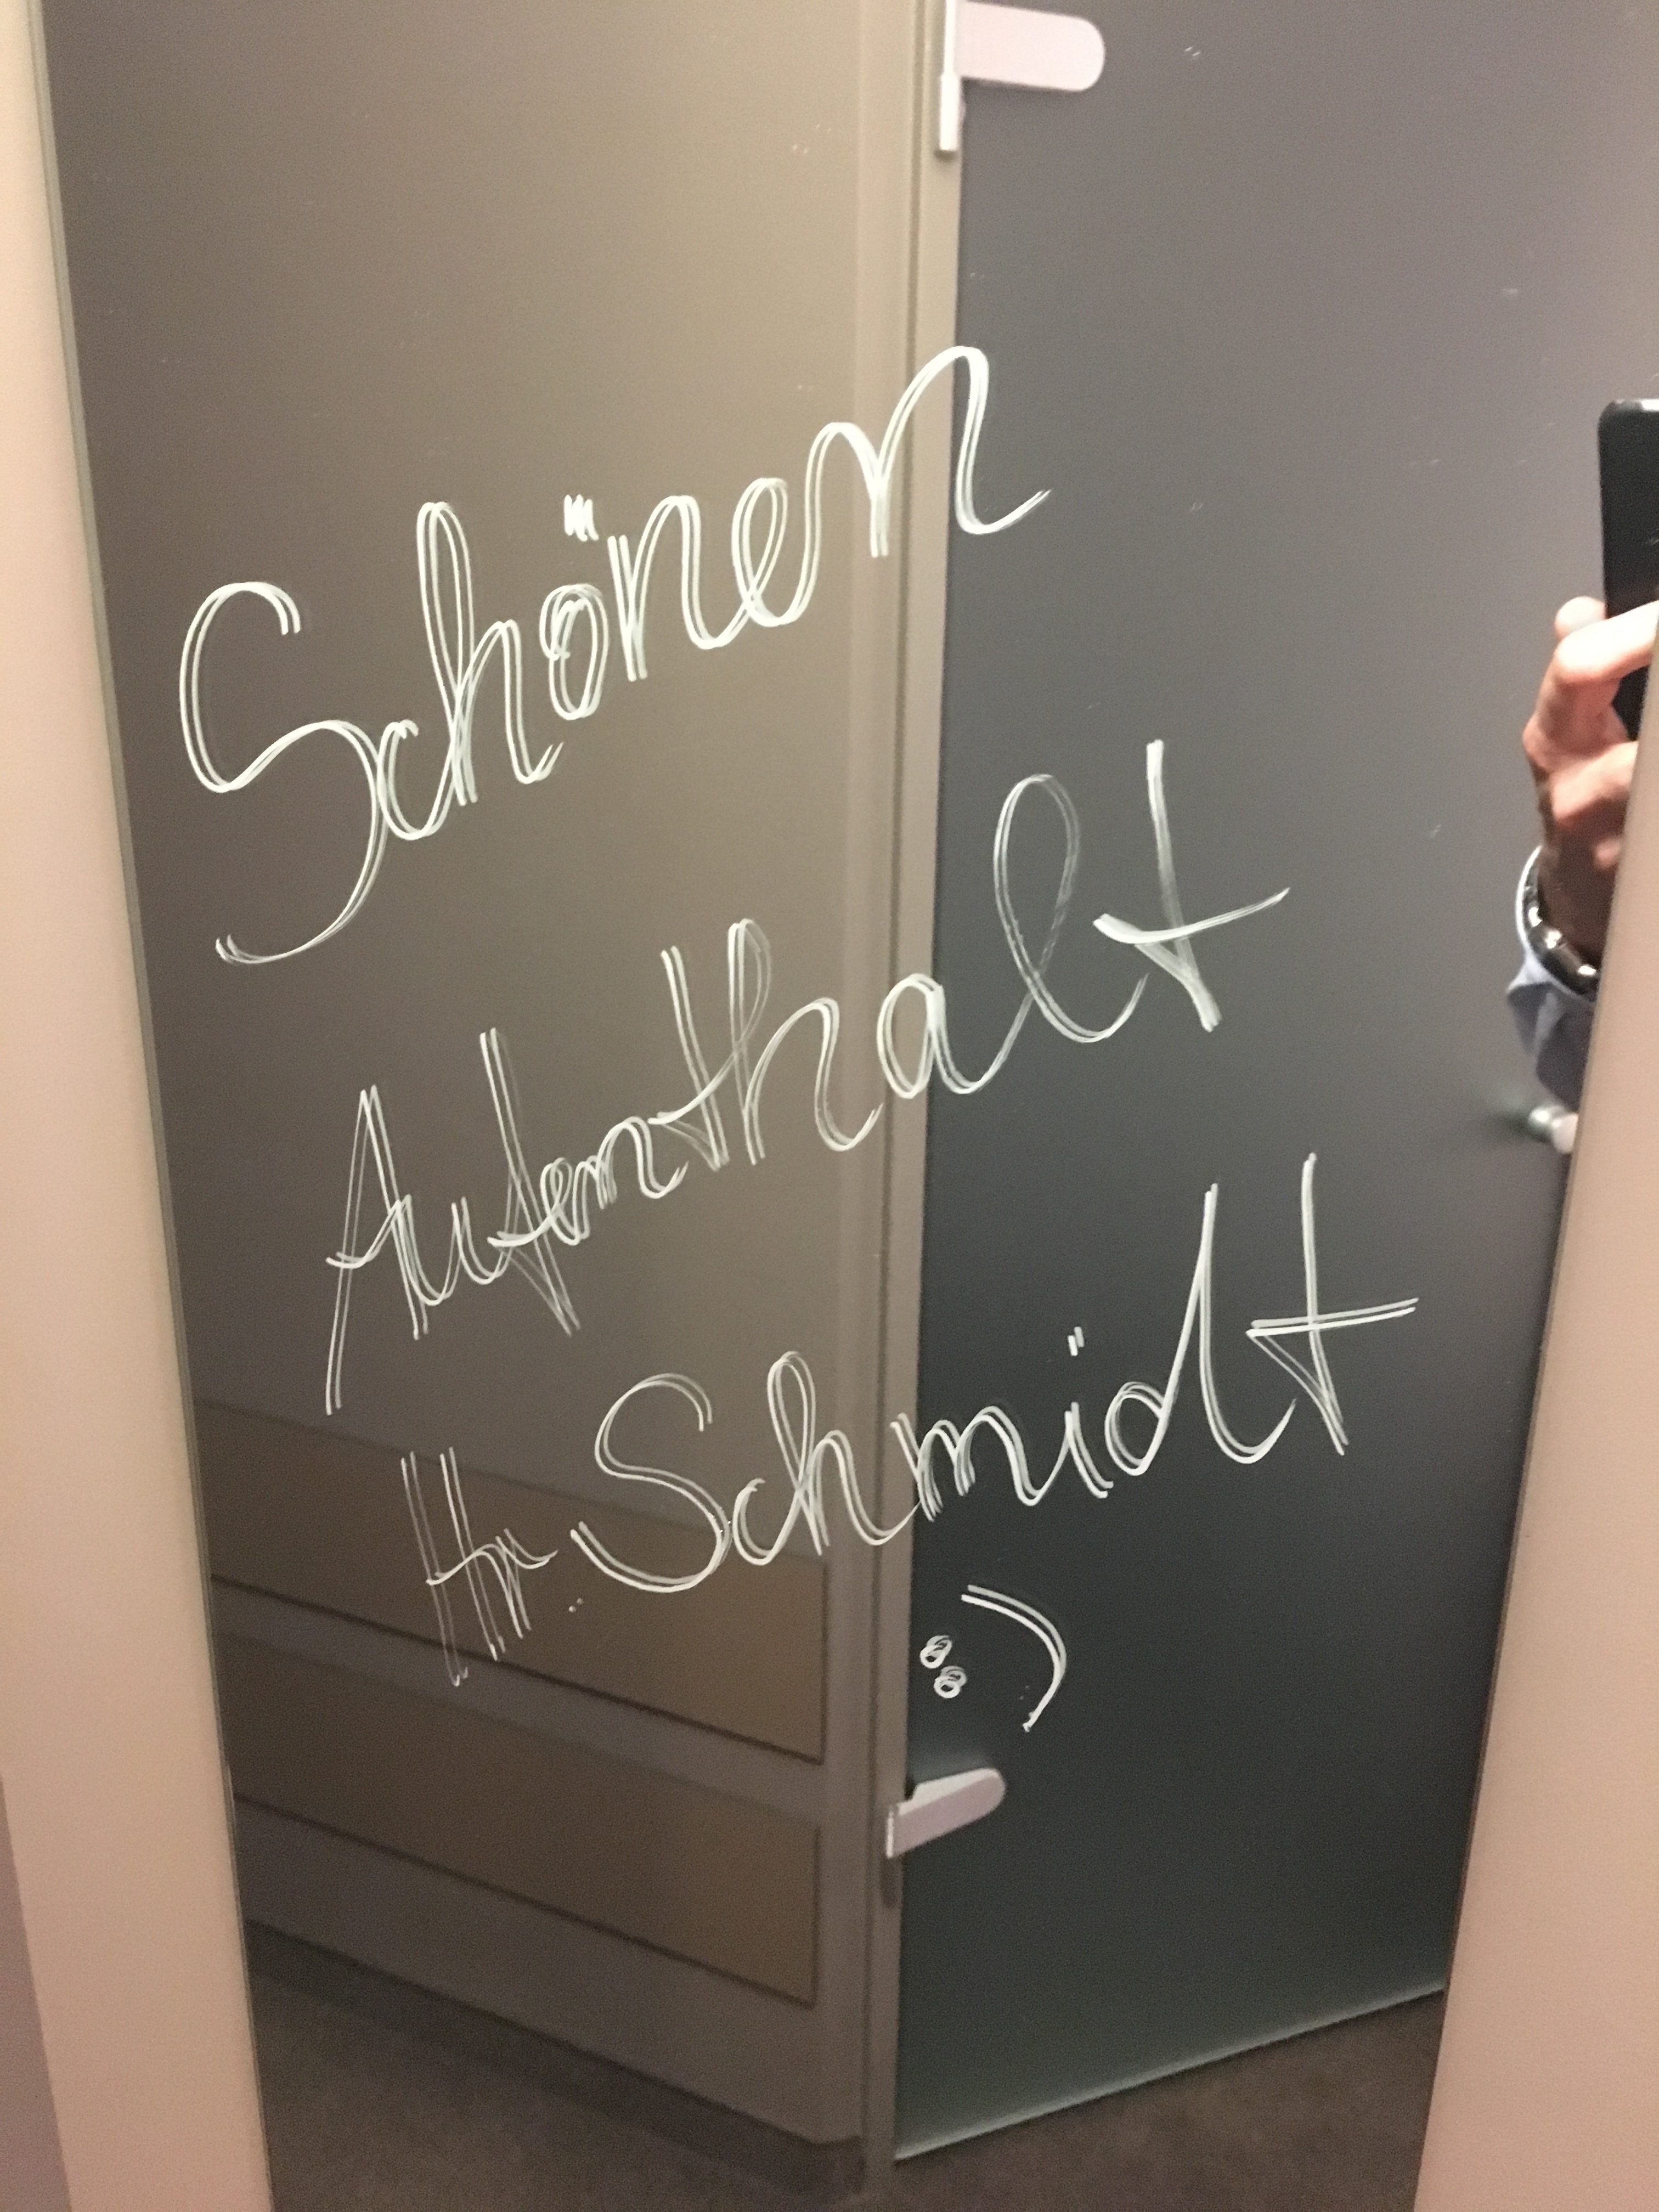 Schönen
Aufenthalt
Hr. Schmidt
:)